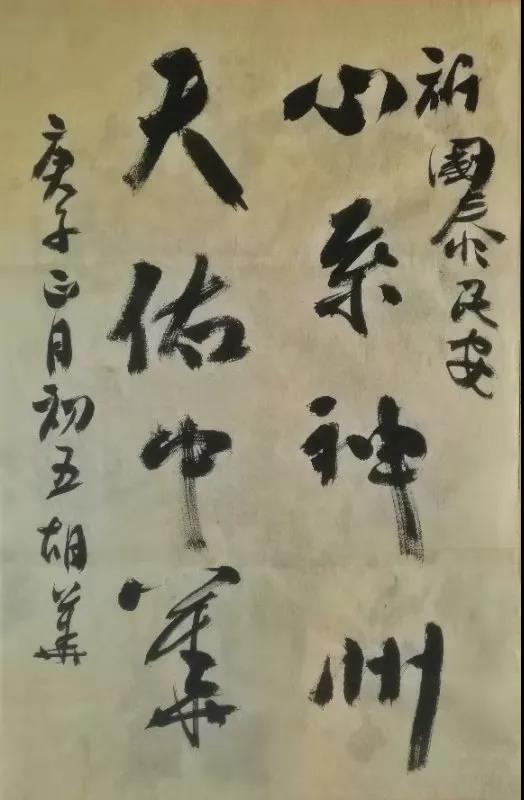 祈國泰民安
心系神州
天佑中華
庚子正月初五胡華